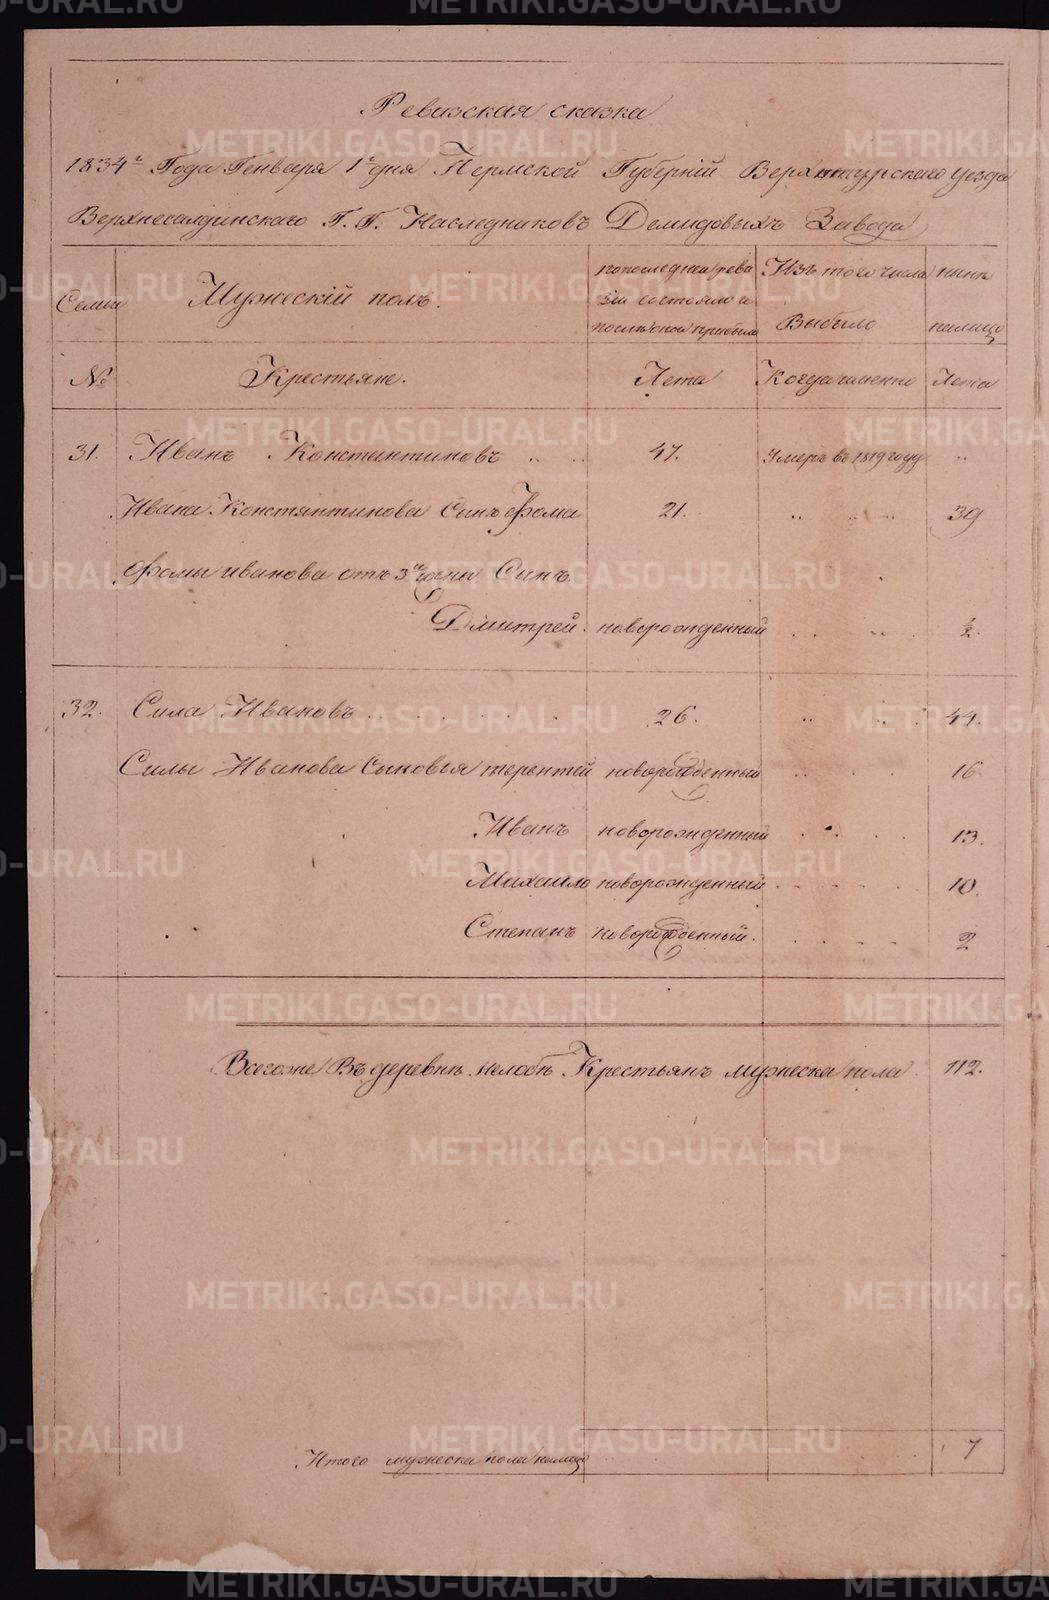 Ревизская сказка
1834го Года Генваря 1го дня Пермской Губерній Верхотурского уезда
Верхнесалдинского Г. Г. Наследниковъ Демидовыхъ Завода
Семьи Мужескій полъ. по последней ревизіи состояло и после оной прибыло Изъ того числа Выбыло нынѣ налицо
№ Крестьяне. Лета Когда именно Лета
31. Иванъ Константиновъ 47. Умеръ въ 1819 году
Ивана Константинова Сынъ Фома 21. 39
Фомы иванова отъ 3й жены Сынъ
Дмитрей новорожденный ½.
32. Сила Ивановъ 26. 44.
Силы Иванова Сыновья терентей новорожденный 16
Иванъ новорожденный 13.
Михаило новорожденный 10.
Степанъ новорожденный. 2
Всегоже Въ деревне Нелобѣ Крестьянъ мужеска пола 112.
Итого мужеска пола налицо 7
METRIKI.GASO-URAL.RU